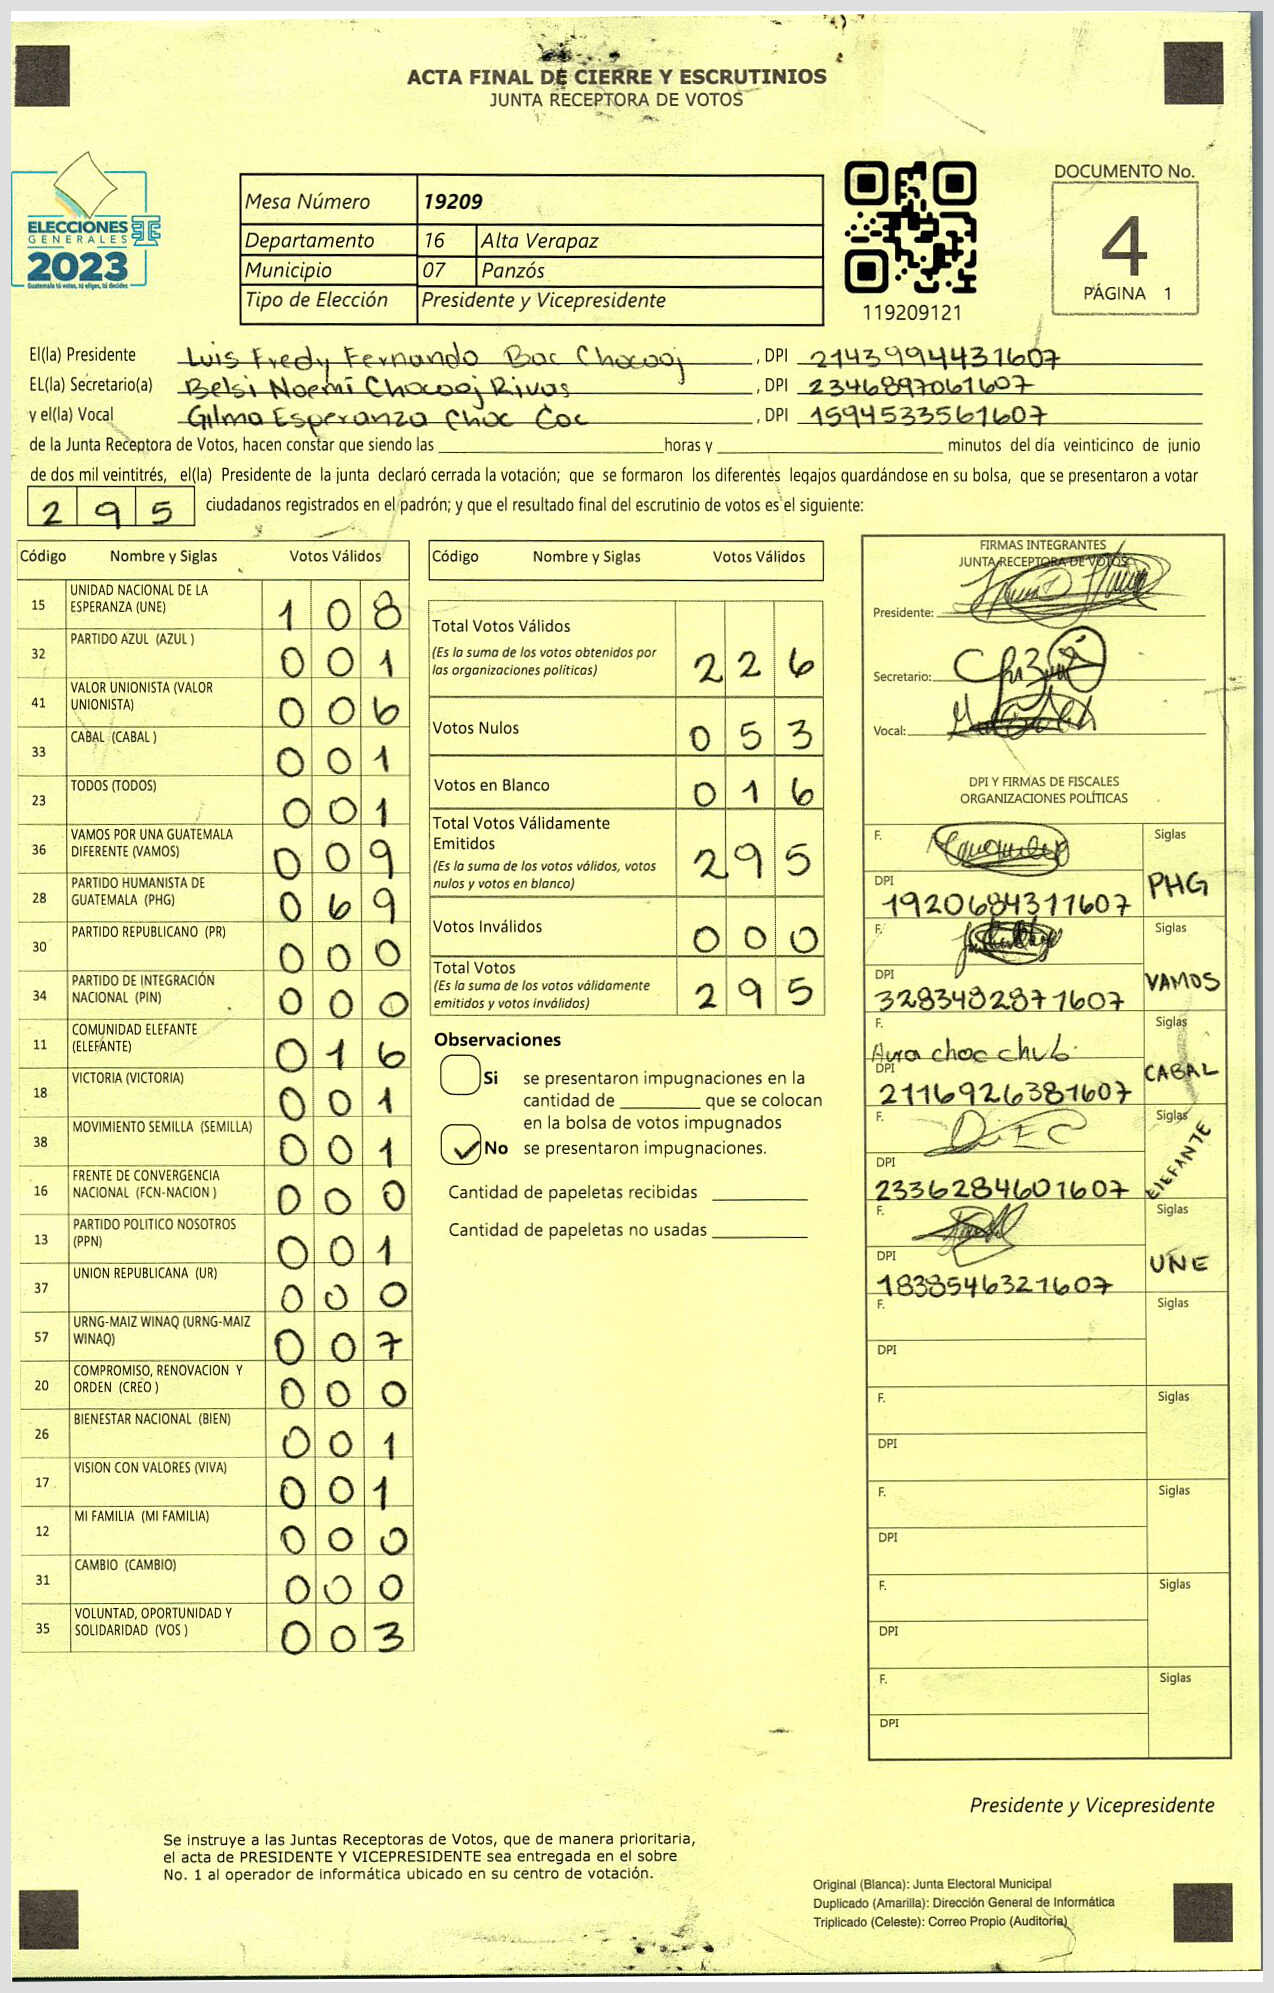 ACTA FINAL DE CIERRE Y ESCRUTINIOS
JUNTA RECEPTORA DE VOTOS
ELECCIONES
GENERALES
2023
Guatemala tú votas, tú eliges, tú decides
Mesa Número 19209
Departamento 16 Alta Verapaz
Municipio 07 Panzós
Tipo de Elección Presidente y Vicepresidente
119209121
DOCUMENTO No.
4
PÁGINA 1
El(la) Presidente Luis Fredy Fernando Bac Chocooj, DPI 2143994431607
EL(la) Secretario(a) Belsi Noemi Chocooj Rivas, DPI 2346897061607
y el(la) Vocal Gilma Esperanza Choc Coc, DPI 1594533561607
de la Junta Receptora de Votos, hacen constar que siendo las horas y minutos del día veinticinco de junio
de dos mil veintitrés, el(la) Presidente de la junta declaró cerrada la votación; que se formaron los diferentes legajos guardándose en su bolsa, que se presentaron a votar
295 ciudadanos registrados en el padrón; y que el resultado final del escrutinio de votos es el siguiente:
Código Nombre y Siglas Votos Válidos
15 UNIDAD NACIONAL DE LA ESPERANZA (UNE) 108
32 PARTIDO AZUL (AZUL ) 001
41 VALOR UNIONISTA (VALOR UNIONISTA) 006
33 CABAL (CABAL ) 001
23 TODOS (TODOS) 001
36 VAMOS POR UNA GUATEMALA DIFERENTE (VAMOS) 009
28 PARTIDO HUMANISTA DE GUATEMALA (PHG) 069
30 PARTIDO REPUBLICANO (PR) 000
34 PARTIDO DE INTEGRACIÓN NACIONAL (PIN) 000
11 COMUNIDAD ELEFANTE (ELEFANTE) 016
18 VICTORIA (VICTORIA) 001
38 MOVIMIENTO SEMILLA (SEMILLA) 001
16 FRENTE DE CONVERGENCIA NACIONAL (FCN-NACION ) 000
13 PARTIDO POLITICO NOSOTROS (PPN) 001
37 UNION REPUBLICANA (UR) 000
57 URNG-MAIZ WINAQ (URNG-MAIZ WINAQ) 007
20 COMPROMISO, RENOVACION Y ORDEN (CREO ) 000
26 BIENESTAR NACIONAL (BIEN) 001
17 VISION CON VALORES (VIVA) 001
12 MI FAMILIA (MI FAMILIA) 000
31 CAMBIO (CAMBIO) 000
35 VOLUNTAD, OPORTUNIDAD Y SOLIDARIDAD (VOS ) 003
Código Nombre y Siglas Votos Válidos
Total Votos Válidos 226
(Es la suma de los votos obtenidos por
las organizaciones políticas)
Votos Nulos 053
Votos en Blanco 016
Total Votos Válidamente
Emitidos 295
(Es la suma de los votos válidos, votos
nulos y votos en blanco)
Votos Inválidos 000
Total Votos 295
(Es la suma de los votos válidamente
emitidos y votos inválidos)
Observaciones
Si se presentaron impugnaciones en la
cantidad de que se colocan
en la bolsa de votos impugnados
No se presentaron impugnaciones.
Cantidad de papeletas recibidas
Cantidad de papeletas no usadas
FIRMAS INTEGRANTES
JUNTA RECEPTORA DE VOTOS
Presidente:
Secretario:
Vocal:
DPI Y FIRMAS DE FISCALES
ORGANIZACIONES POLÍTICAS
F. Siglas
DPI PHG
1920684311607
F. Siglas
DPI VAMOS
3283482871607
F. Siglas
Aura choc chub
DPI CABAL
2116926381607
F. Siglas
DPI ElEFANTE
2336284601607
F. Siglas
DPI UNE
1838546321607
F. Siglas
DPI
F. Siglas
DPI
F. Siglas
DPI
F. Siglas
DPI
F. Siglas
DPI
Presidente y Vicepresidente
Se instruye a las Juntas Receptoras de Votos, que de manera prioritaria,
el acta de PRESIDENTE Y VICEPRESIDENTE sea entregada en el sobre
No. 1 al operador de informática ubicado en su centro de votación.
Original (Blanca): Junta Electoral Municipal
Duplicado (Amarilla): Dirección General de Informática
Triplicado (Celeste): Correo Propio (Auditoría)